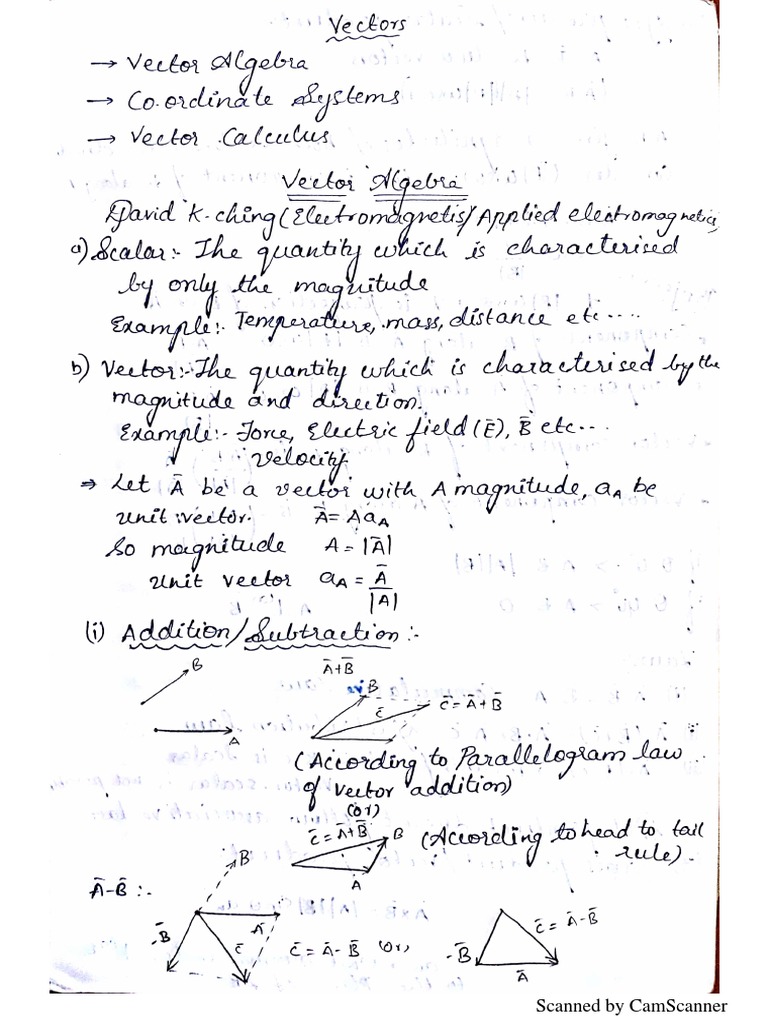 Vectors
→ Vector Algebra
→ Co.ordinate Systems
→ Vector Calculus
Vector Algebra
David K. ching (Electromagnetis/Applied electromagnetics
a) Scalar:- The quantity which is characterised
by only the magnitude
Example:- Temperature, mass, distance etc....
b) Vector:- The quantity which is characterised by the
magnitude and direction.
Example:- Force, Electric field (E̅), B̅ etc....
Velocity
⇒ Let A̅ be a vector with A magnitude, aA be
unit vector. A̅ = A aA
So magnitude A = |A̅|
Unit vector aA = A̅
|A|
(i) Addition/Subtraction:-
B A̅+B̅
B
C̅ C̅ = A̅+B̅
A
(According to Parallelogram law
of vector addition)
(or)
C̅ = A̅+B̅ B (According to head to tail
A rule).
B
A̅-B̅ :-
-B̅ A̅ C̅ C̅ = A̅ - B̅ (or) -B̅ C̅ = A̅ - B̅
A̅
Scanned by CamScanner